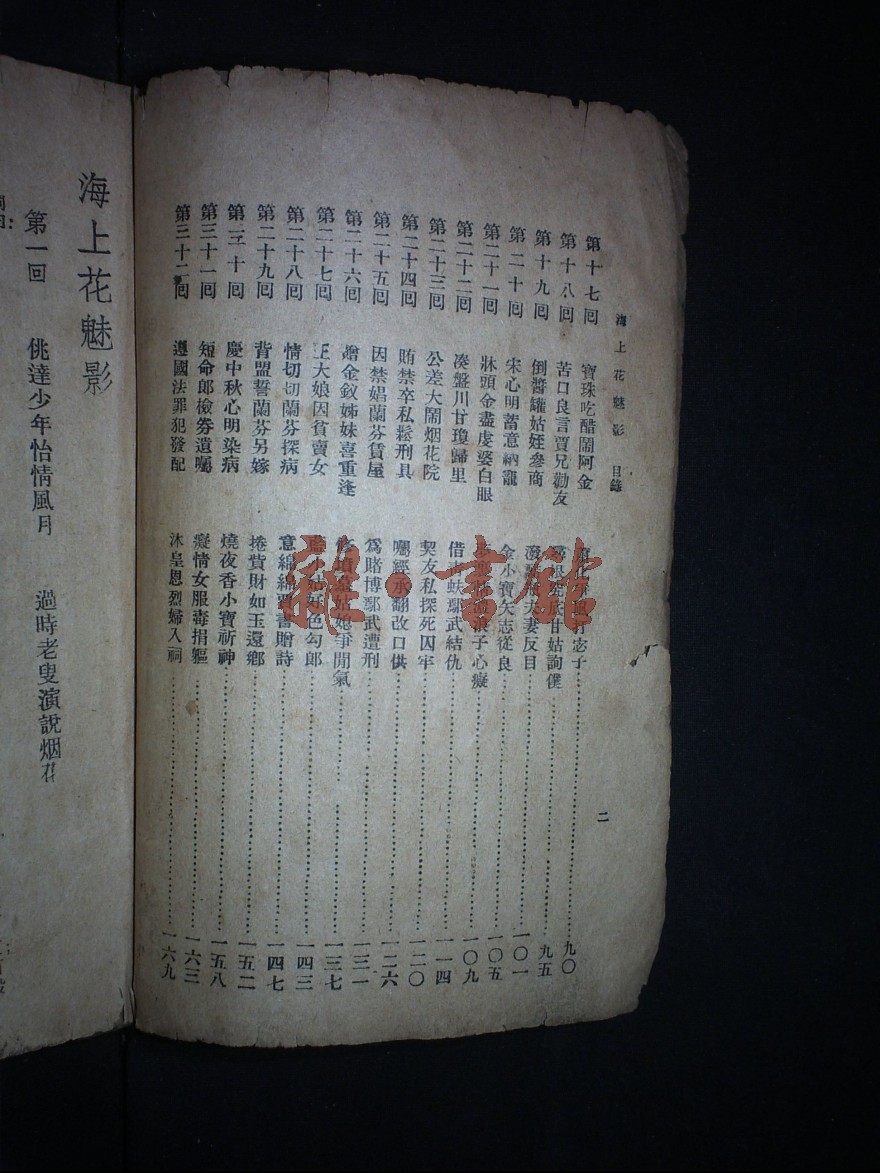 海上花魅影　目錄
第十七囘　寶珠吃醋鬧阿金　打宓子　九〇
第十八囘　苦口良言賈兄勸友　甘姑詢僕　九五
第十九囘　倒醬罐姑姪參商　夫妻反目　一〇一
第二十囘　宋心明蓄意納寵　金小寶矢志從良　一〇五
第二十一囘　牀頭金盡虔婆白眼　浪子心癡　一〇九
第二十二囘　凑盤川甘瓊歸里　借青蚨鄢武結仇　一一四
第二十三囘　公差大鬧烟花院　契友私探死囚牢　一二〇
第二十四囘　賄禁卒私鬆刑具　囑經承翻改口供　一二六
第二十五囘　因禁娼蘭芬賃屋　爲賭博鄢武遭刑　一三一
第二十六囘　贈金釵姊妹喜重逢　爭閒氣　一三七
第二十七囘　王大娘因貧賣女　小姑好色勾郎　一四三
第二十八囘　情切切蘭芬探病　意綿綿賈書贈詩　一四七
第二十九囘　背盟誓蘭芬另嫁　捲貲財如玉還鄉　一五二
第三十囘　慶中秋心明染病　燒夜香小寶祈神　一五八
第三十一囘　短命郎檢券遺囑　癡情女服毒捐軀　一六三
第三十二囘　遵國法罪犯發配　沐皇恩烈婦入祠　一六九
二
海上花魅影
第一回　佻達少年怡情風月　過時老叟演説烟花
雜·書館